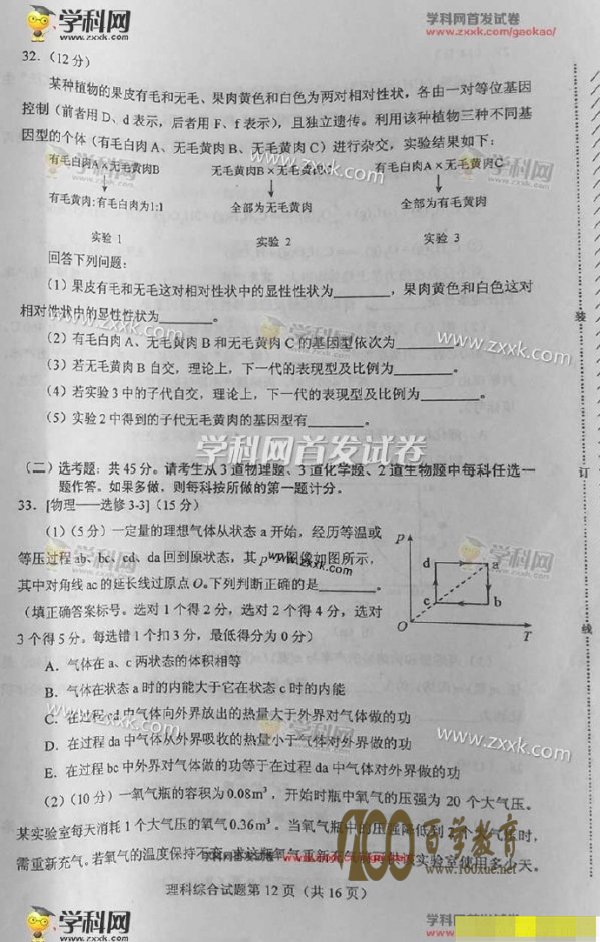 学科网 学科网首发试卷
www.zxxk.com www.zxxk.com/gaokao/
32.（12 分）
某种植物的果皮有毛和无毛、果肉黄色和白色为两对相对性状，各由一对等位基因
控制（前者用 D、d 表示，后者用 F、f 表示），且独立遗传。利用该种植物三种不同基
因型的个体（有毛白肉 A、无毛黄肉 B、无毛黄肉 C）进行杂交，实验结果如下：
有毛白肉A×无毛黄肉B 无毛黄肉B×无毛黄肉 有毛白肉A×无毛黄肉C
↓ ↓ ↓
有毛黄肉:有毛白肉为1:1 全部为无毛黄肉 全部为有毛黄肉
实验 1 实验 2 实验 3
回答下列问题：
（1）果皮有毛和无毛这对相对性状中的显性性状为________，果肉黄色和白色这对
相对性状中的显性性状为________。
（2）有毛白肉 A、无毛黄肉 B 和无毛黄肉 C 的基因型依次为________。
（3）若无毛黄肉 B 自交，理论上，下一代的表现型及比例为________。
（4）若实验 3 中的子代自交，理论上，下一代的表现型及比例为________。
（5）实验 2 中得到的子代无毛黄肉的基因型有________。
学科网首发试卷
（二）选考题：共 45 分。请考生从 3 道物理题、3 道化学题、2 道生物题中每科任选一
题作答。如果多做，则每科按所做的第一题计分。
33. [物理——选修 3-3]（15 分）
（1）（5 分）一定量的理想气体从状态 a 开始，经历等温或
等压过程 ab、bc、cd、da 回到原状态，其 p 图像如图所示，
其中对角线 ac 的延长线过原点 O。下列判断正确的是________。
（填正确答案标号。选对 1 个得 2 分，选对 2 个得 4 分，选对
3 个得 5 分。每选错 1 个扣 3 分，最低得分为 0 分）
p
d a
c b
O T
A．气体在 a、c 两状态的体积相等
B．气体在状态 a 时的内能大于它在状态 c 时的内能
C．在过程 cd 中气体向外界放出的热量大于外界对气体做的功
D．在过程 da 中气体从外界吸收的热量小于气体对外界做的功
E．在过程 bc 中外界对气体做的功等于在过程 da 中气体对外界做的功
（2）（10 分）一氧气瓶的容积为 0.08m³，开始时瓶中氧气的压强为 20 个大气压。
某实验室每天消耗 1 个大气压的氧气 0.36m³。当氧气瓶中的压强降低到 2 个大气压时，
需重新充气。若氧气的温度保持不变，求这瓶氧气重新充气前可供该实验室使用多少天。
100百学教育
www.100xue.net
理科综合试题第 12 页（共 16 页）
装
订
线
学科网 学科网首发试卷
www.zxxk.com www.zxxk.com/gaokao/